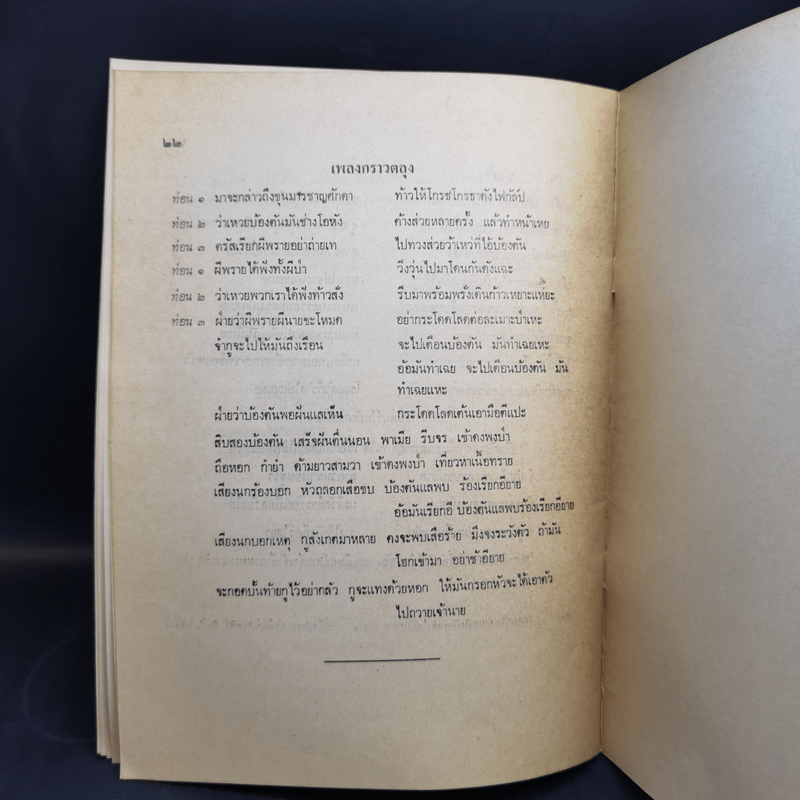 ๒๒
เพลงกราวตลุง
ท่อน ๑ มาจะกล่าวถึงขุนมารชาญศักดา ท้าวให้โกรธโกรธาดังไฟกัลป์
ท่อน ๒ ว่าเหวยบ้องตันมันช่างโอหัง ค้างส่วยหลายครั้ง แล้วทำหน้าเหย
ท่อน ๓ ตรัสเรียกผีพรายอย่าถ่ายเท ไปทวงส่วยว้าเหว่ที่ไอ้บ้องตัน
ท่อน ๑ ผีพรายได้ฟังทั้งผีป่า วิ่งวุ่นไปมาโดนกันดังแฉะ
ท่อน ๒ ว่าเหวยพวกเราได้ฟังท้าวสั่ง รีบมาพร้อมพรั่งเดินก้าวเหยาะแหยะ
ท่อน ๓ ฝ่ายว่าผีพรายผีนายขะโหมด อย่ากระโดดโลดต่อละเมาะป่าเหะ
จำกูจะไปให้มันถึงเรือน จะไปเตือนบ้องตัน มันทำเฉยเหะ
อ้อมันทำเฉย จะไปเตือนบ้องตัน มัน
ทำเฉยแหะ
ฝ่ายว่าบ้องตันพอผันแลเห็น กระโดดโลดเต้นเอามือตีแปะ
สิบสองบ้องตัน เสร็จผันตื่นนอน พาเมีย รีบจร เข้าดงพงป่า
ถือหอก กำยำ ด้ามยาวสามวา เข้าดงพงป่า เที่ยวหาเนื้อทราย
เสียงนกร้องบอก หัวถลอกเสือขบ บ้องตันแลพบ ร้องเรียกอียาย
อ้อมันเรียกอี บ้องตันแลพบร้องเรียกอียาย
เสียงนกบอกเหตุ กูสังเกตมาหลาย คงจะพบเสือร้าย มึงจงระวังตัว ถ้ามัน
โฮกเข้ามา อย่าช้าอียาย
จะกอดบั้นท้ายกูไว้อย่ากลัว กูจะแทงด้วยหอก ให้มันกรอกหัวจะได้เอาตัว
ไปถวายเจ้านาย